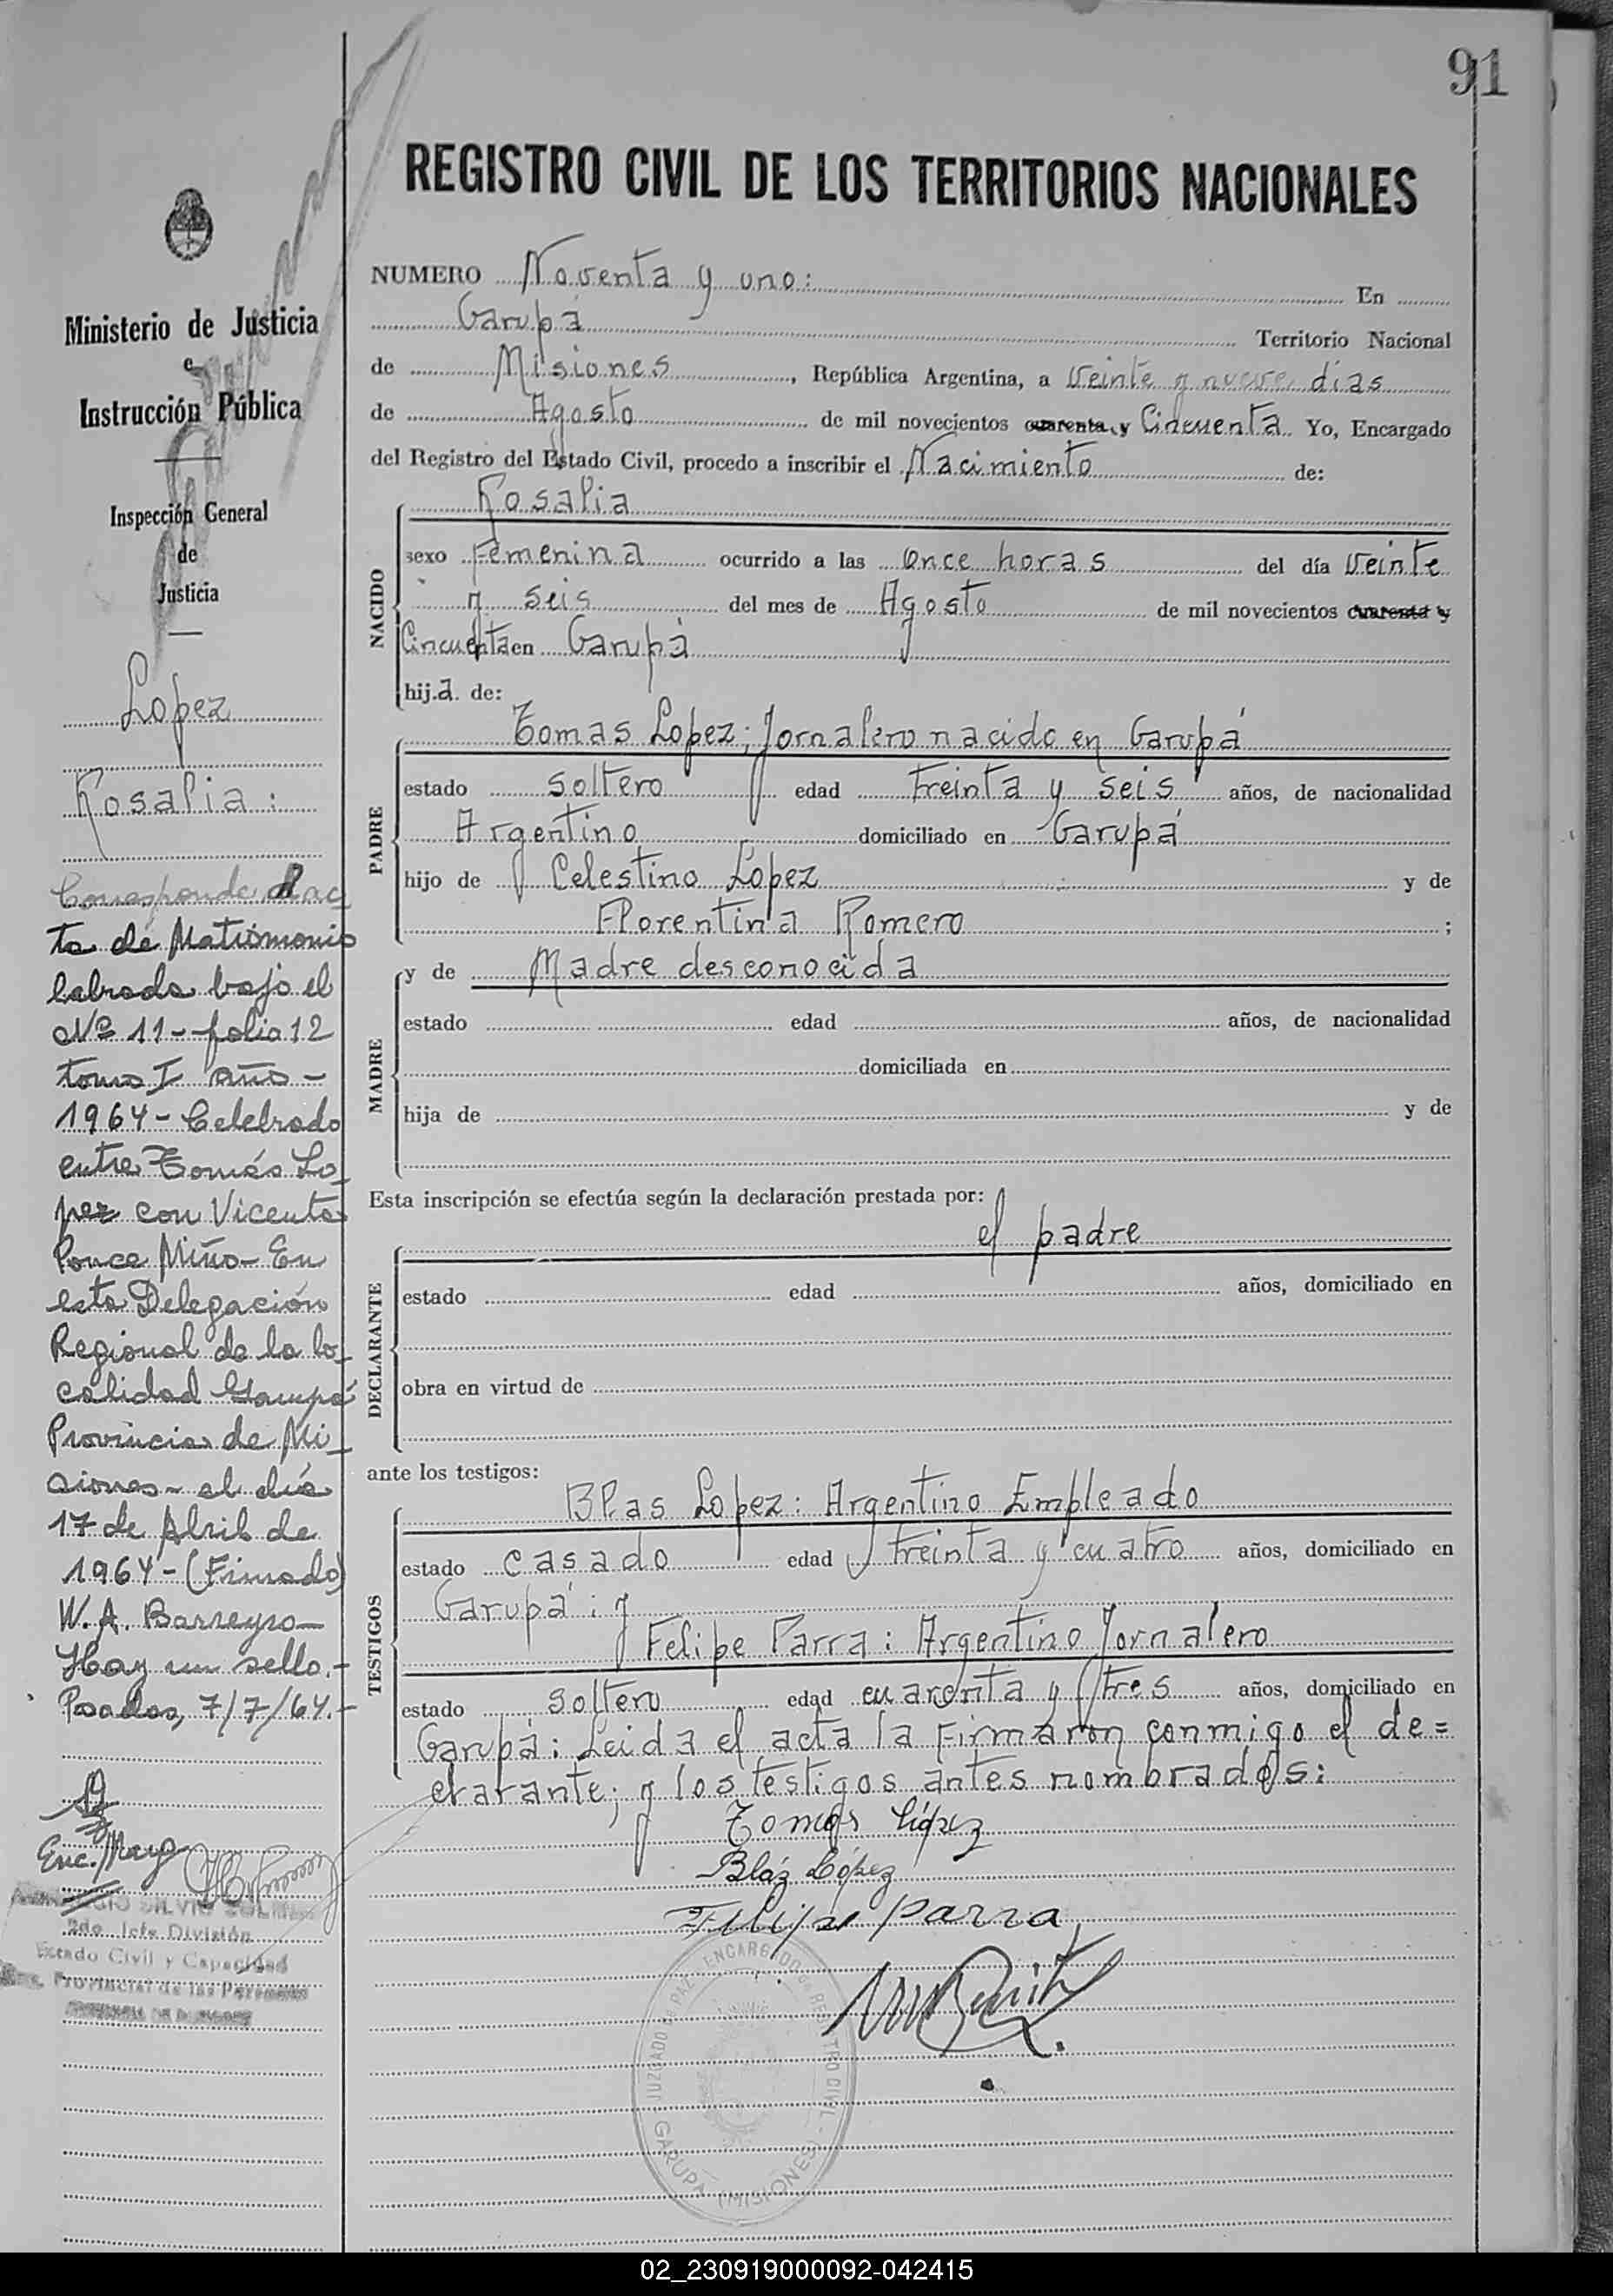 91
REGISTRO CIVIL DE LOS TERRITORIOS NACIONALES
NUMERO Noventa y uno: En
Garupá Territorio Nacional
de Misiones, República Argentina, a Veinte y nueve días
de Agosto de mil novecientos cuarenta y Cincuenta Yo, Encargado
del Registro del Estado Civil, procedo a inscribir el Nacimiento de:
NACIDO
Rosalia
sexo Femenina ocurrido a las once horas del día Veinte
y seis del mes de Agosto de mil novecientos cuarenta y
Cincuenta en Garupá
hija de:
PADRE
Tomas Lopez; Jornalero nacido en Garupá
estado soltero edad treinta y seis años, de nacionalidad
Argentino domiciliado en Garupá
hijo de Celestino López y de
Florentina Romero ;
MADRE
y de Madre desconocida
estado edad años, de nacionalidad
domiciliada en
hija de y de
Esta inscripción se efectúa según la declaración prestada por:
el padre
DECLARANTE
estado edad años, domiciliado en
obra en virtud de
ante los testigos:
TESTIGOS
Blas Lopez: Argentino Empleado
estado casado edad treinta y cuatro años, domiciliado en
Garupá: y
Felipe Parra: Argentino Jornalero
estado soltero edad cuarenta y tres años, domiciliado en
Garupá: Leida el acta la Firmaron conmigo el de=
clarante; y los testigos antes nombrados:
Tomas López
Bláz López
Felipe Parra
JUZGADO DE PAZ - ENCARGADO de REGISTRO CIVIL - GARUPA (MISIONES)
Ministerio de Justicia
e
Instrucción Pública
Inspección General
de
Justicia
Lopez
Rosalia:
Corresponde al ac
ta de Matrimonio
labrada bajo el
Nº 11 - folio 12
tomo I año -
1964 - Celebrado
entre Tomás Lo
pez con Vicenta
Ponce Miño - En
esta Delegación
Regional de la lo
calidad Garupá
Provincia de Mi
siones - el día
17 de Abril de
1964 - (Firmado)
W. A. Barreyro -
Hay un sello. -
Posadas, 7/7/64. -
SILVIO
2do. Jefe División
Estado Civil y Capacidad
Provincial de las Personas
02_230919000092-042415